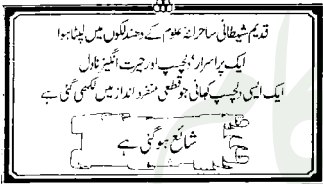 قدیم شیطانی ساحرانہ علوم کے دھندلکوں میں لپٹا ہوا
ایک پراسرار، دلچسپ اور حیرت انگیز ناول
ایک ایسی دلچسپ کہانی جو قطعی منفرد انداز میں لکھی گئی ہے
شائع ہو گئی ہے